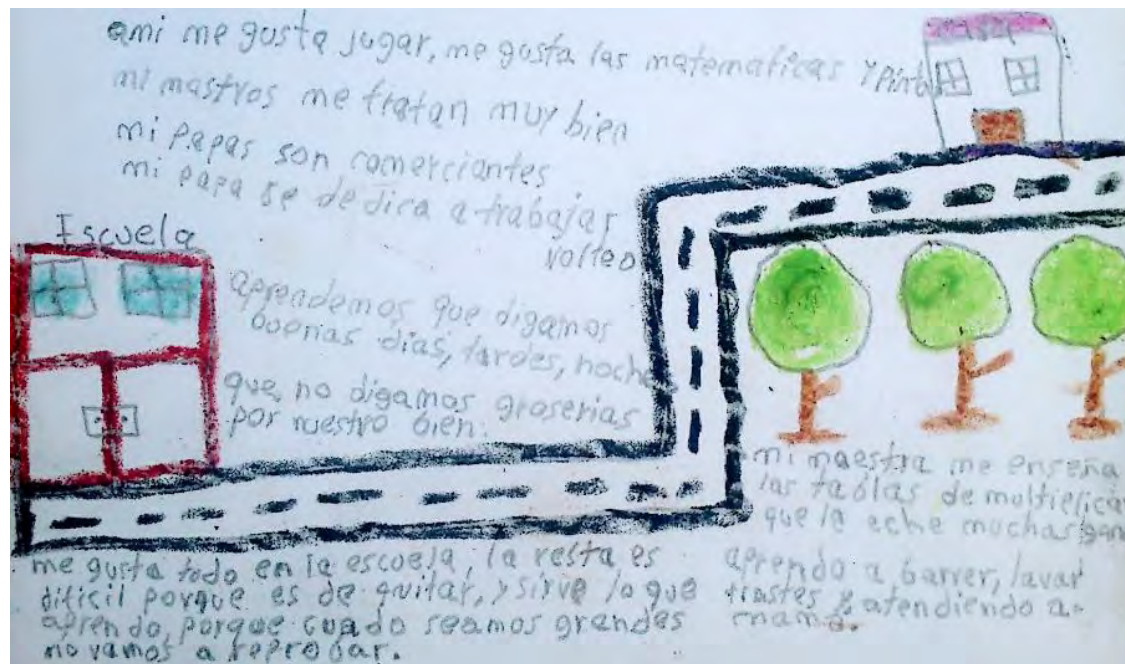 ami me gusta jugar, me gusta las matematicas y pint
mi mastros me tratan muy bien
mi papas son comerciantes
mi papa se dedica a trabajar
volteo
Escuela
aprendemos que digamos
buenas dias, tardes, noche
que, no digamos groserias
por nuestro bien.
mi maestra me enseña
las tablas de multiplicar
que le eche muchas gan
me gusta todo en la escuela, la resta es
dificil porque es de quitar, y sirve lo que
aprendo, porque cuado seamos grandes
no vamos a reprobar.
aprendo a barrer, lavar
trastes y atendiendo a
mama.